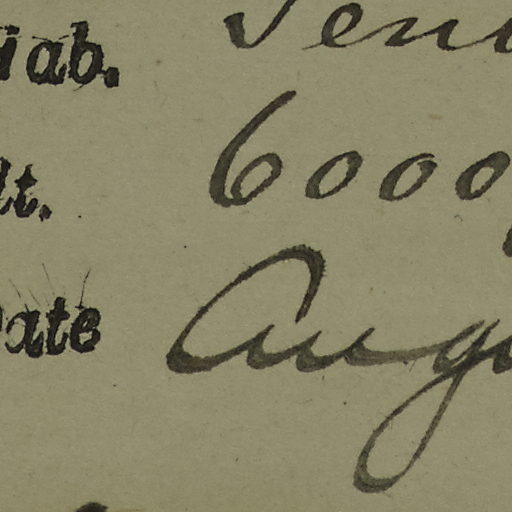 Hab. Ten
Alt. 6000
Date Aug